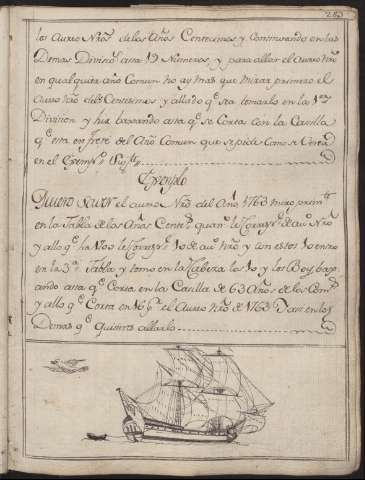 285
los Aureo Nros de los Años Centecimos y Continuando en las
Demas Divisio.s asta 19 Numeros, y para allar el Aureo Nro
en qualquira año Comun no ay mas que mirar primero el
Aureo Nro del Centecimos y allado q.e sea tomarlo en la 1ra
Divicion y hir baxando asta q.e se Corta con la Casilla
q.e esta en frete del Año Comun que se pide como se Vera
en el Exempº Sigte
Exemplo
Quiero Saver el aureo Nro del Año 1763 miro primº
en la Tabla de los Años Cente.s quan.to le Corresp.e de au.o Nro
y allo q.e a 1700 le Corresp.e 10 de au.o Nro y con estos 10 entro
en la 2a Tabla y tomo en la Cabeza los 10 y los Boy bax
ando asta q.e Corta en la Casilla de 63 Años de los Com.s
y allo q.e Corta en 16 p.r el Aureo Nro de 1763 I asi en los
Demas q.e quisiere allarlo